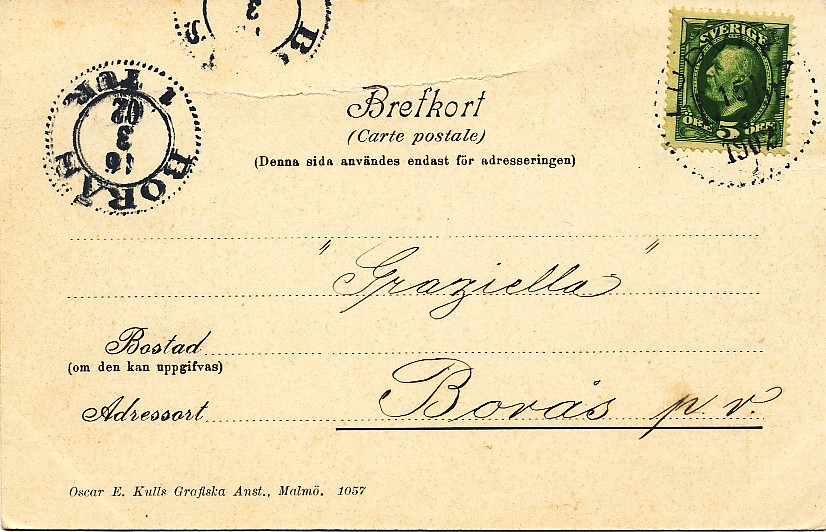 SVERIGE
ÖRE 5 ÖRE
1902
BORÅS
16
3
02
1 TUR
Brefkort
(Carte postale)
(Denna sida användes endast för adresseringen)
"Graziella"
Bostad
(om den kan uppgifvas)
Adressort Borås p. r.
Oscar E. Kulls Grafiska Anst., Malmö. 1057